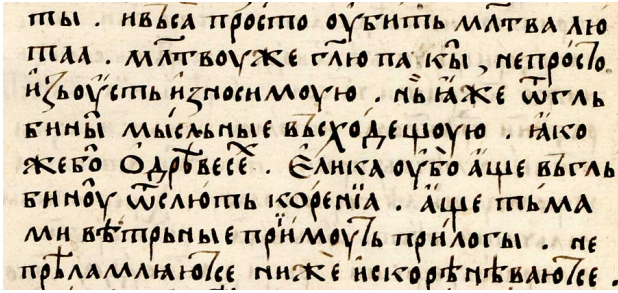 ты . ивьса просто оубить млт҃ва лю
таа . млт҃воу же гл҃ю пакы , непросто
изьоусть износимоую . нь ꙗже ѿгль
бины мысльные вьсходещоую . ꙗко
жебо Ѻдрѣвесех . Єлика оубо аще вьгль
биноу ѿслють корениа . аще тьма
ми вѣтрьные приимоуть прилогы . не
прѣламлꙗютсе ниже искоренѣваютсе .